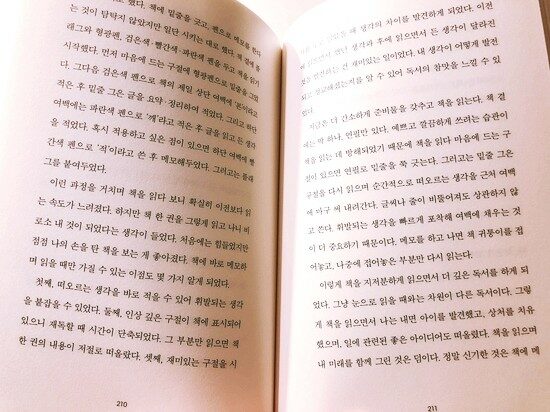 했다. 책에 밑줄을 긋고, 펜으로 메모를 한다
는 것이 탐탁지 않았지만 일단 시키는 대로 했다. 책 곁에 플
래그와 형광펜, 검은색·빨간색·파란색 펜을 두고 책을 읽기
시작했다. 먼저 마음에 드는 구절에 형광펜으로 밑줄을 그었
다. 그다음 검은색 펜으로 책의 제일 상단 여백에 '본'이라고
적은 후 밑줄 그은 글을 요약·정리하여 적었다. 그리고 하단
여백에는 파란색 펜으로 '깨'라고 적은 후 글을 읽고 든 생각
을 적었다. 혹시 적용하고 싶은 점이 있으면 하단 여백에 빨
간색 펜으로 '적'이라고 쓴 후 메모해두었다. 그러고는 플래
그를 붙여두었다.
이런 과정을 거치며 책을 읽다 보니 확실히 이전보다 읽
는 속도가 느려졌다. 하지만 책 한 권을 그렇게 읽고 나니 비
로소 내 것이 되었다는 생각이 들었다. 처음에는 힘들었지만
점점 나의 손을 탄 책을 보는 게 좋아졌다. 책에 바로 메모하
며 읽을 때만 가질 수 있는 이점도 몇 가지 알게 되었다.
첫째, 떠오르는 생각을 바로 적을 수 있어 휘발되는 생각
을 붙잡을 수 있었다. 둘째, 인상 깊은 구절이 책에 표시되어
있으니 재독할 때 시간이 단축되었다. 그 부분만 읽으면 책
한 권의 내용이 저절로 떠올랐다. 셋째, 재미있는 구절을 시
210
고 읽었을 때 생각의 차이를 발견하게 되었다. 이전
에 읽으면서 했던 생각과 후에 읽으면서 든 생각이 달라진
것을 발견하는 건 재미있는 일이었다. 내 생각이 어떻게 발전
되고 정교해졌는지를 알 수 있어 독서의 참맛을 느낄 수 있
었다.
지금은 더 간소하게 준비물을 갖추고 책을 읽는다. 책 겉
에는 딱 하나, 연필만 있다. 예쁘고 깔끔하게 쓰려는 습관이
책을 읽는 데 방해되었기 때문이다. 책을 읽다 마음에 드는 구
절이 있으면 연필로 밑줄을 쭉 긋는다. 그러고는 밑줄 그은
구절을 다시 읽으며 순간적으로 떠오르는 생각을 근처 여백
에 마구 써 내려간다. 글씨나 줄이 비뚤어져도 상관하지 않
고 쓴다. 휘발되는 생각을 빠르게 포착해 여백에 채우는 것
이 더 중요하기 때문이다. 메모를 하고 나면 책 귀퉁이를 접
어놓고, 나중에 접어놓은 부분만 다시 읽는다.
이렇게 책을 지저분하게 읽으면서 더 깊은 독서를 하게 되
었다. 그냥 눈으로 읽을 때와는 차원이 다른 독서이다. 그렇
게 책을 읽으면서 나는 내면 아이를 발견했고, 상처를 치유
했으며, 일에 관련된 좋은 아이디어도 떠올랐다. 책을 읽으며
내 미래를 함께 그린 것은 덤이다. 정말 신기한 것은 책에 메
211